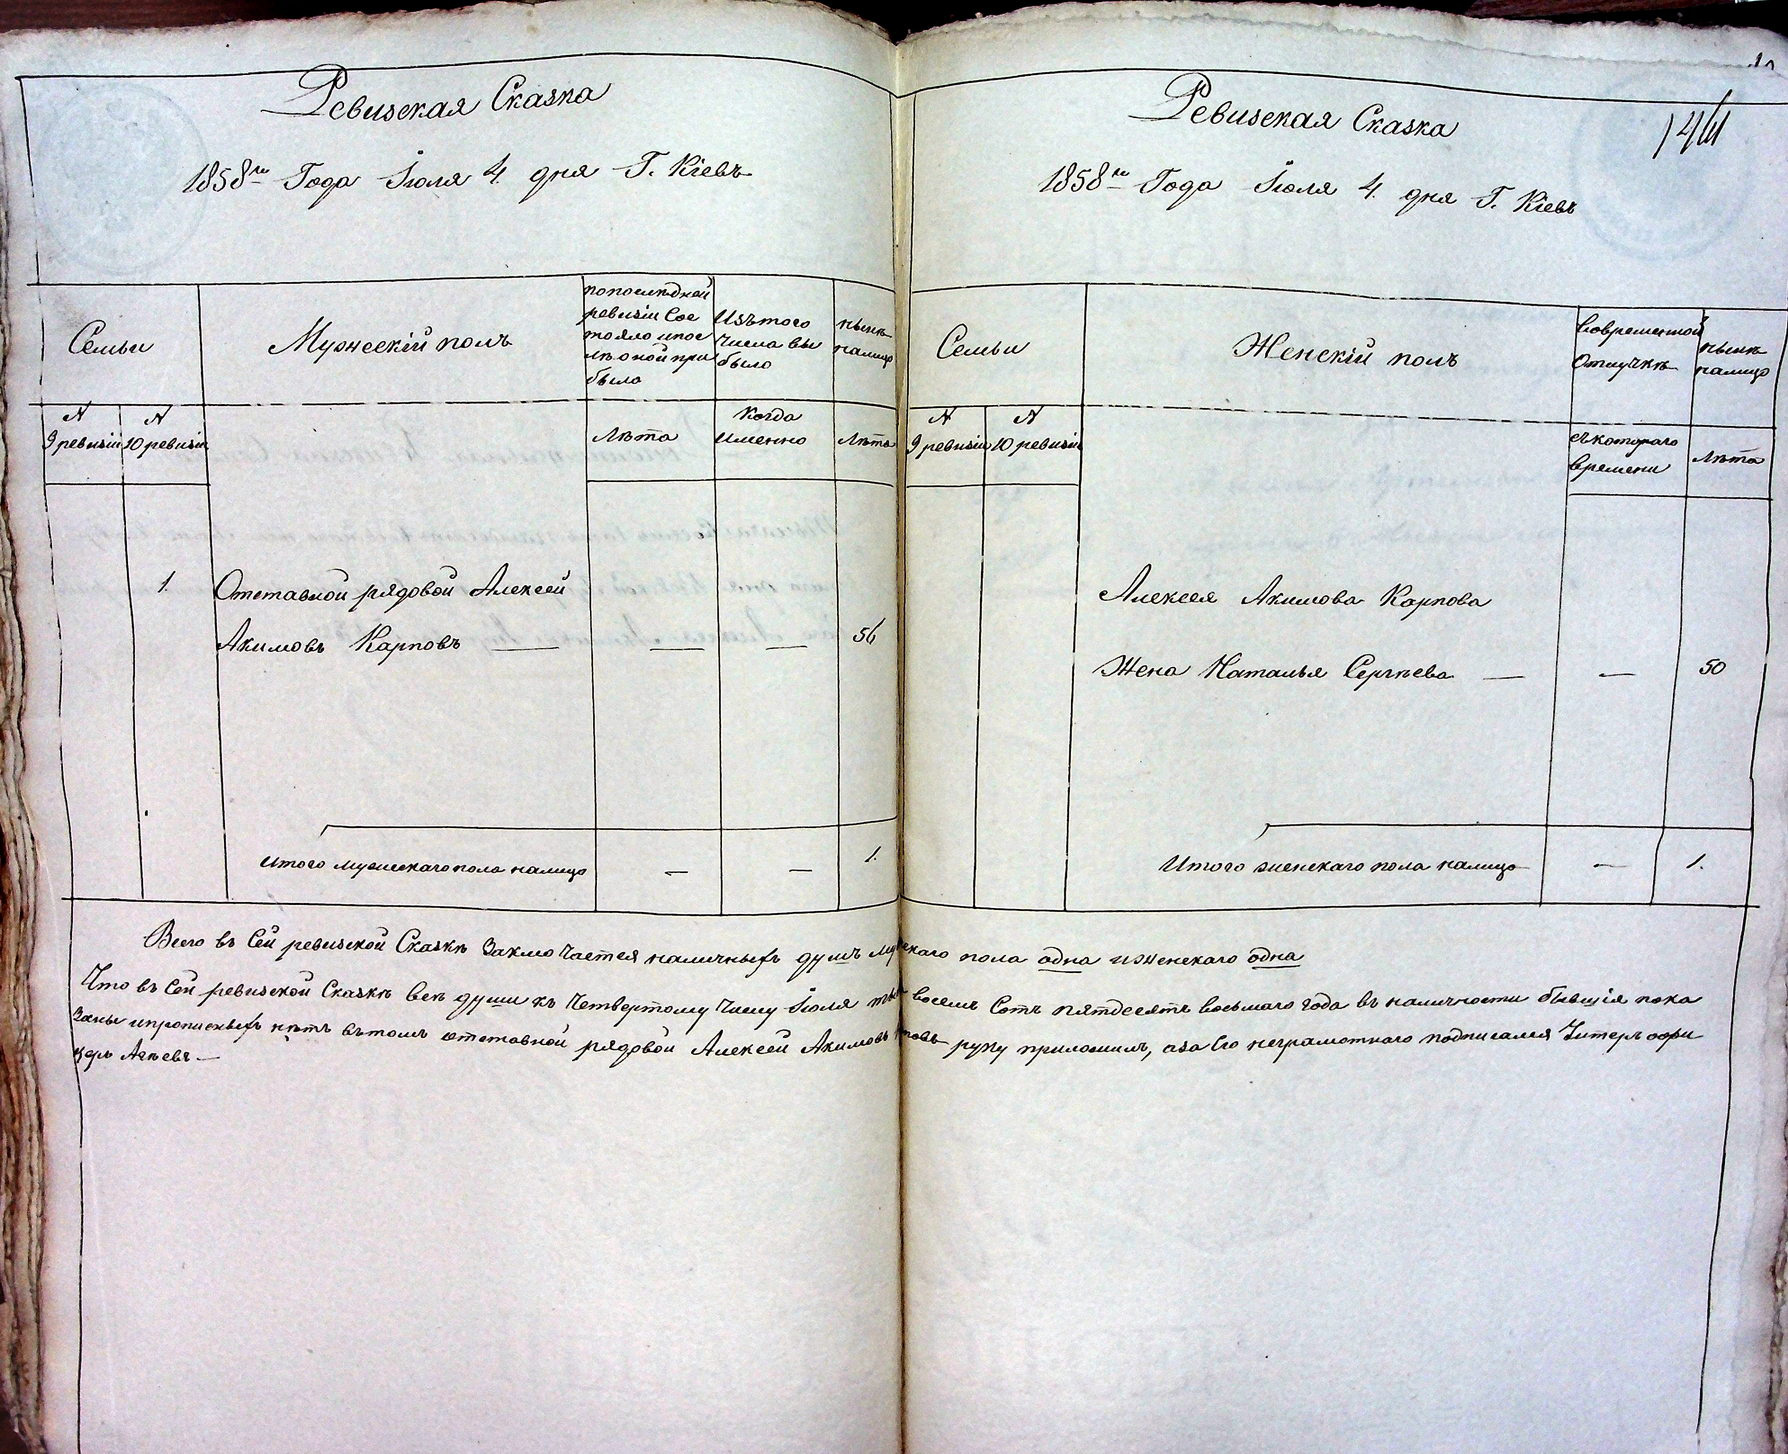 Ревизская Сказка
1858го Года Іюля 4. дня Г. Кіевъ
Семьи
Мужескій полъ
попоследней
ревизіи Сос
тояло ипос
лѣ оной при
было
Изътого
числа вы
было
нынѣ
налицо
N
9 ревизіи
N
10 ревизіи
Лѣта
Когда
именно
Лѣта
1.
Отставной рядовой Алексей
Акимовъ Карповъ — — — 56
Итого мужескаго пола налицо — — 1.
Ревизская Сказка
1858го Года Іюля 4. дня Г. Кіевъ
Семьи
Женскій полъ
Вовременной
Отлучкѣ
нынѣ
налицо
N
9 ревизіи
N
10 ревизіи
съкотораго
времени
Лѣта
Алексея Акимова Карпова
Жена Наталья Сергѣева — — 50
Итого женскаго пола налицо — 1.
Всего въ Сей ревизской Сказкѣ Заключается наличныхъ душъ му скаго пола одна иженскаго одна
Что въ Сей ревизской Сказкѣ всѣ души къ Четвертому Числу Іюля восемь Сотъ пятдесятъ восьмаго года въ наличности бывшія пока
заны ипрописныхъ нѣтъ вътомъ отставной рядовой Алексей Акимовъ повъ руку приложилъ, аза Его неграмотнаго подписался Унтеръ офи
церъ Агѣевъ —